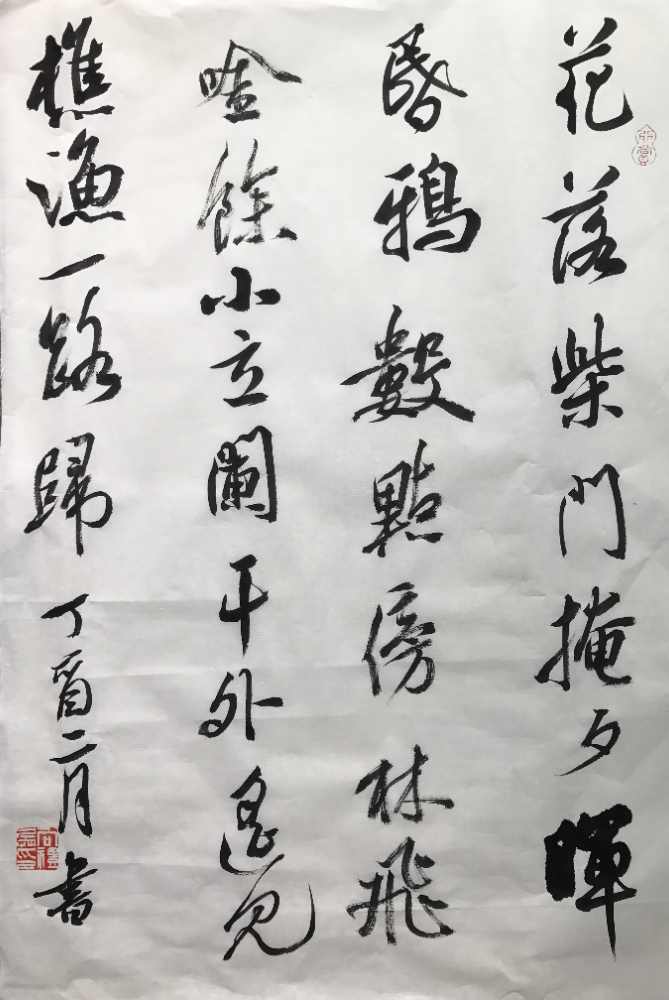 花落柴門掩夕暉
昏鴉數點傍林飛
吟餘小立闌干外遙見
樵漁一路歸 丁酉二月書